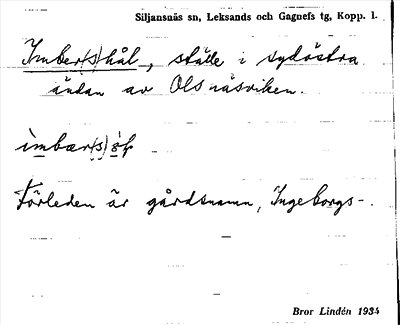 Siljansnäs sn, Leksands och Gagnefs tg, Kopp. l.
Imber(s)hål, ställe i sydöstra
ändan av Olsnäsviken.
ìmbær(s)
Förleden är gårdsnamn, Ingeborgs-.
Bror Lindén 1934